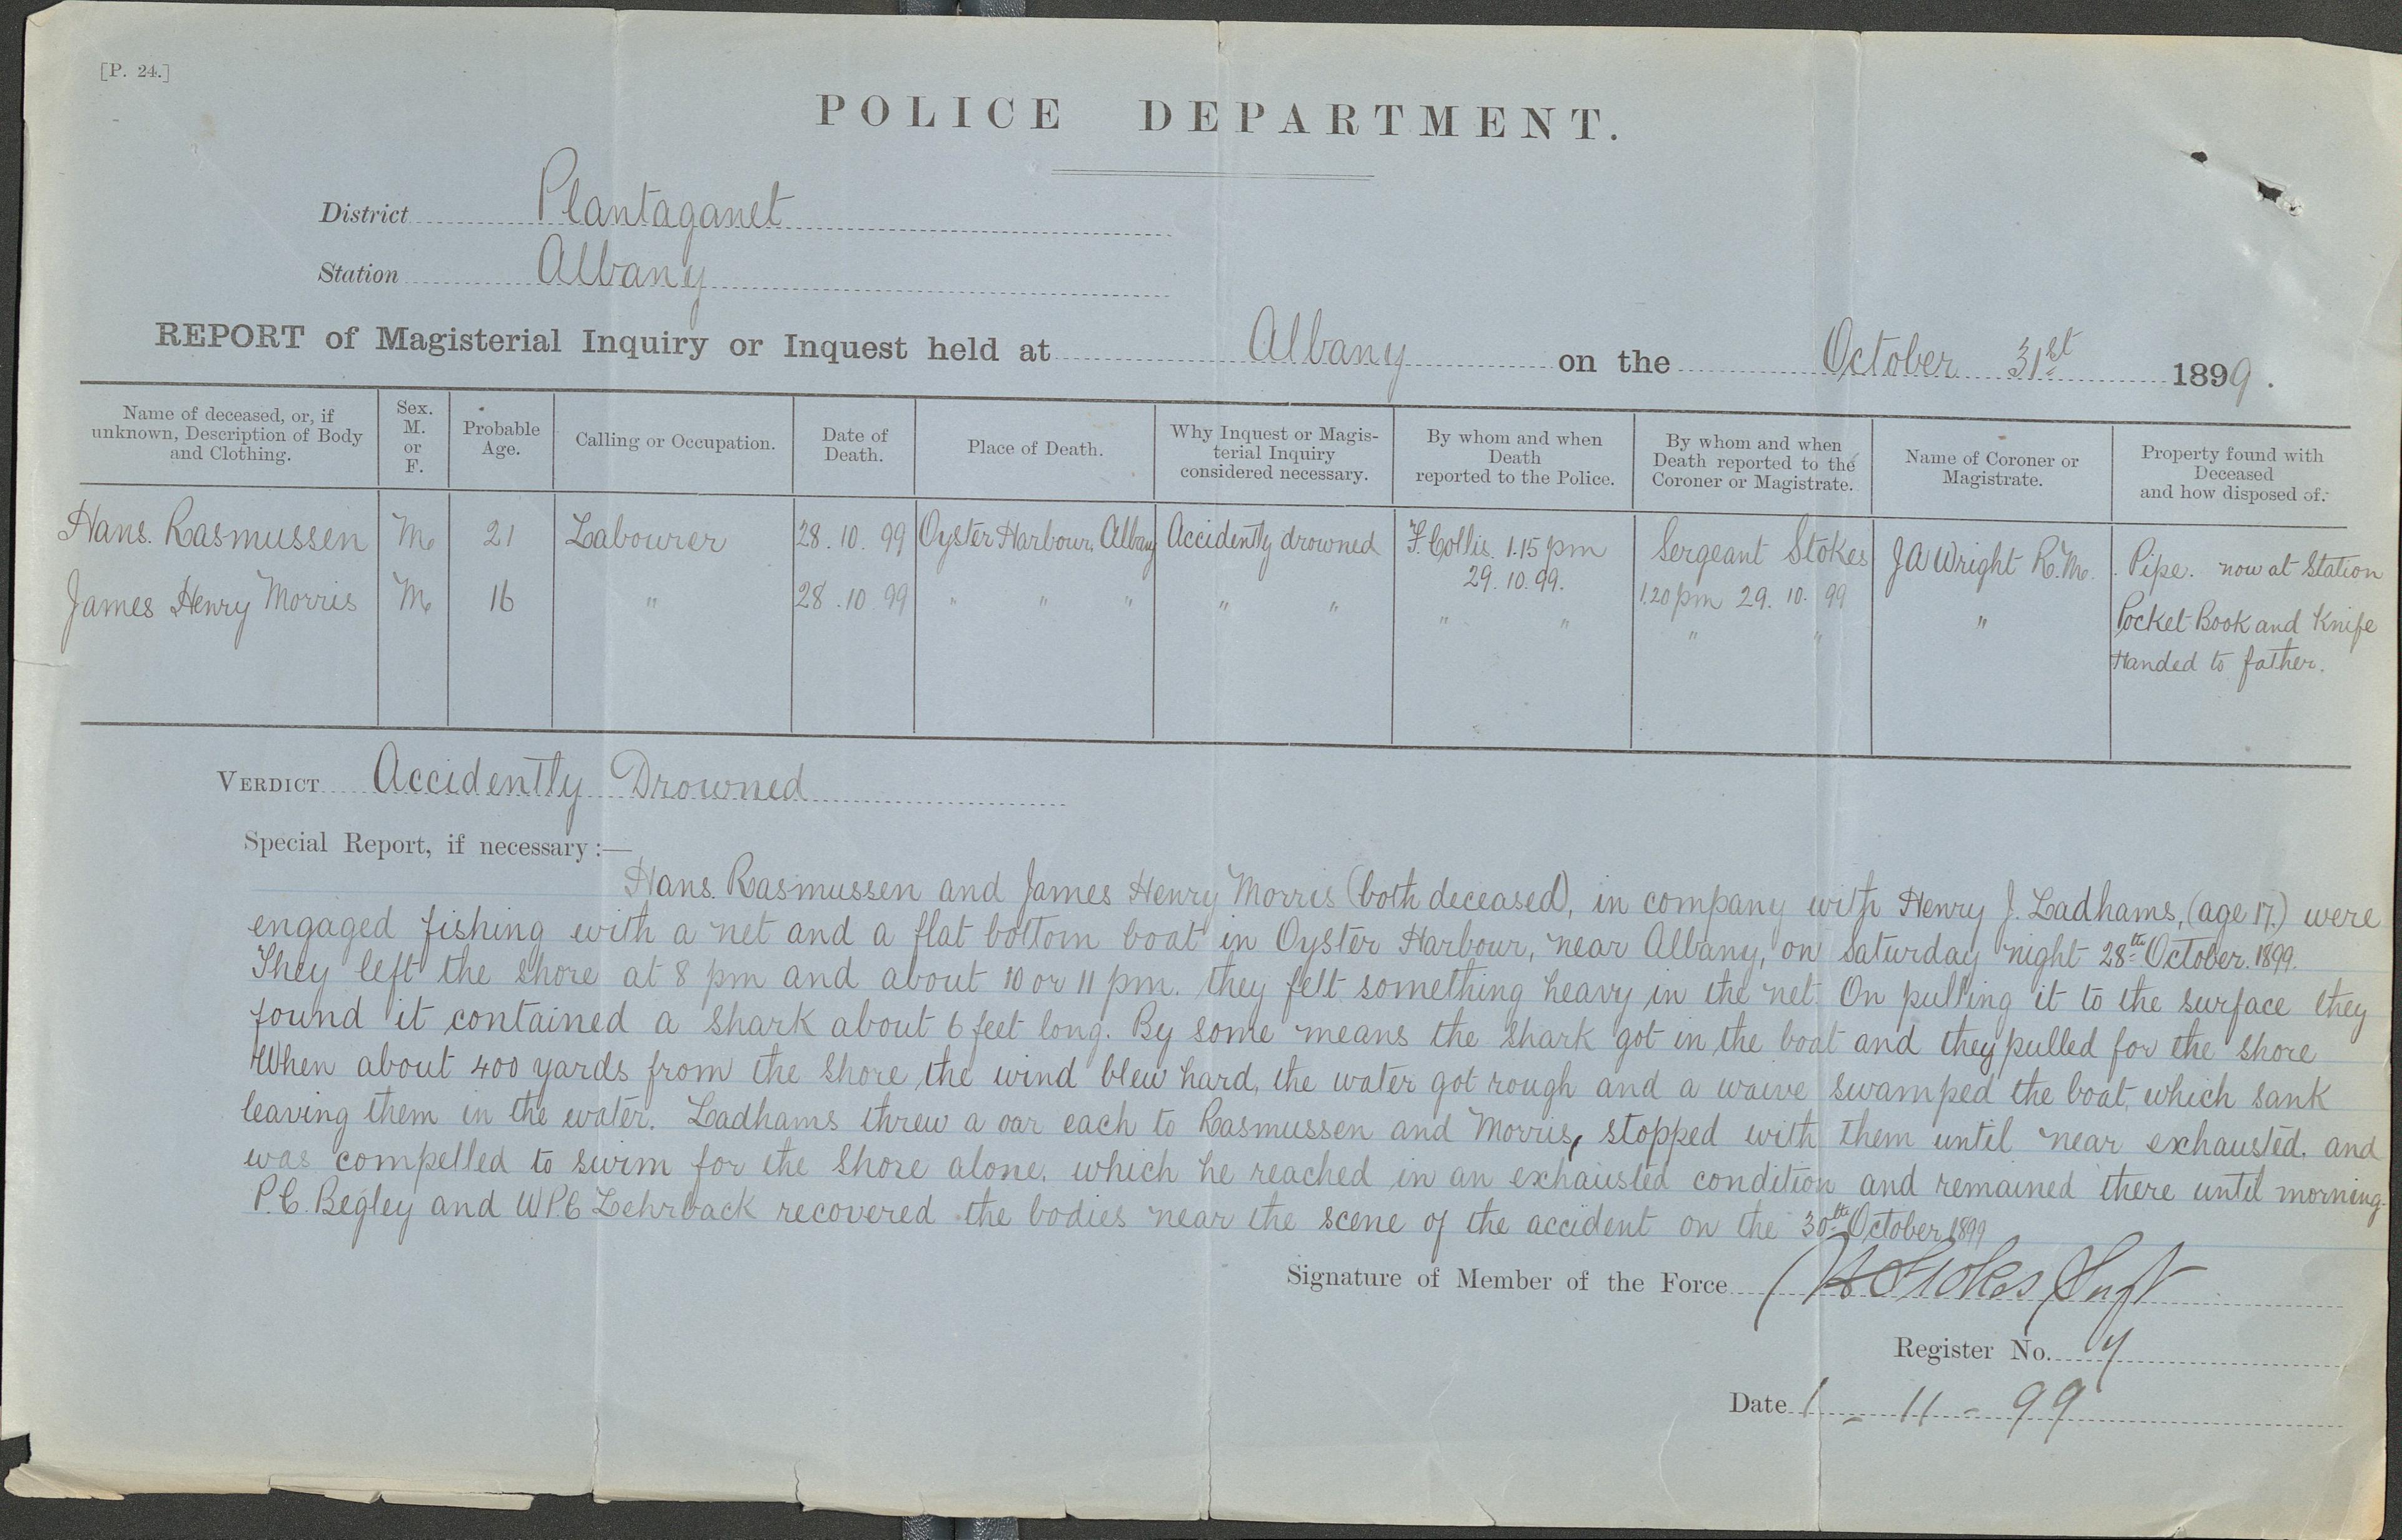 [P. 24.]
POLICE DEPARTMENT.
District Plantaganet
Station Albany
REPORT of Magisterial Inquiry or Inquest held at Albany on the October 31st 1899.
Name of deceased, or, if unknown, Description of Body and Clothing.
Sex. M. or F.
Probable Age.
Calling or Occupation.
Date of Death.
Place of Death.
Why Inquest or Magis-terial Inquiry considered necessary.
By whom and when Death reported to the Police.
By whom and when Death reported to the Coroner or Magistrate.
Name of Coroner or Magistrate.
Property found with Deceased and how disposed of.
Hans. Rasmussen M. 21 Labourer 28. 10. 99 Oyster Harbour, Albany Accidently drowned F. Collis. 1.15 pm 29. 10. 99. Sergeant Stokes 1.20 pm 29. 10. 99 JA Wright R.M. Pipe. now at Station
James Henry Morris M. 16 " 28. 10 99 " " " " " " " " " " Pocket Book and Knife
Handed to father.
VERDICT Accidently Drowned
Special Report, if necessary:—
Hans. Rasmussen and James Henry Morris (both deceased), in company with Henry J. Ladhams, (age 17.) were
engaged fishing with a net and a flat bottom boat in Oyster Harbour, near Albany, on Saturday night 28th October. 1899.
They left the shore at 8 pm and about 10 or 11 pm. they felt something heavy in the net. On pulling it to the surface they
found it contained a shark about 6 feet long. By some means the shark got in the boat and they pulled for the shore
When about 400 yards from the shore, the wind blew hard, the water got rough and a waive swamped the boat, which sank
leaving them in the water. Ladhams threw a oar each to Rasmussen and Morris, stopped with them until near exhausted, and
was compelled to swim for the shore alone, which he reached in an exhausted condition and remained there until morning.
P.C. Begley and W.P.C Lehrback recovered the bodies near the scene of the accident on the 30th October 1899
Signature of Member of the Force Stokes Sergt
Register No.
Date 1 - 11 - 99